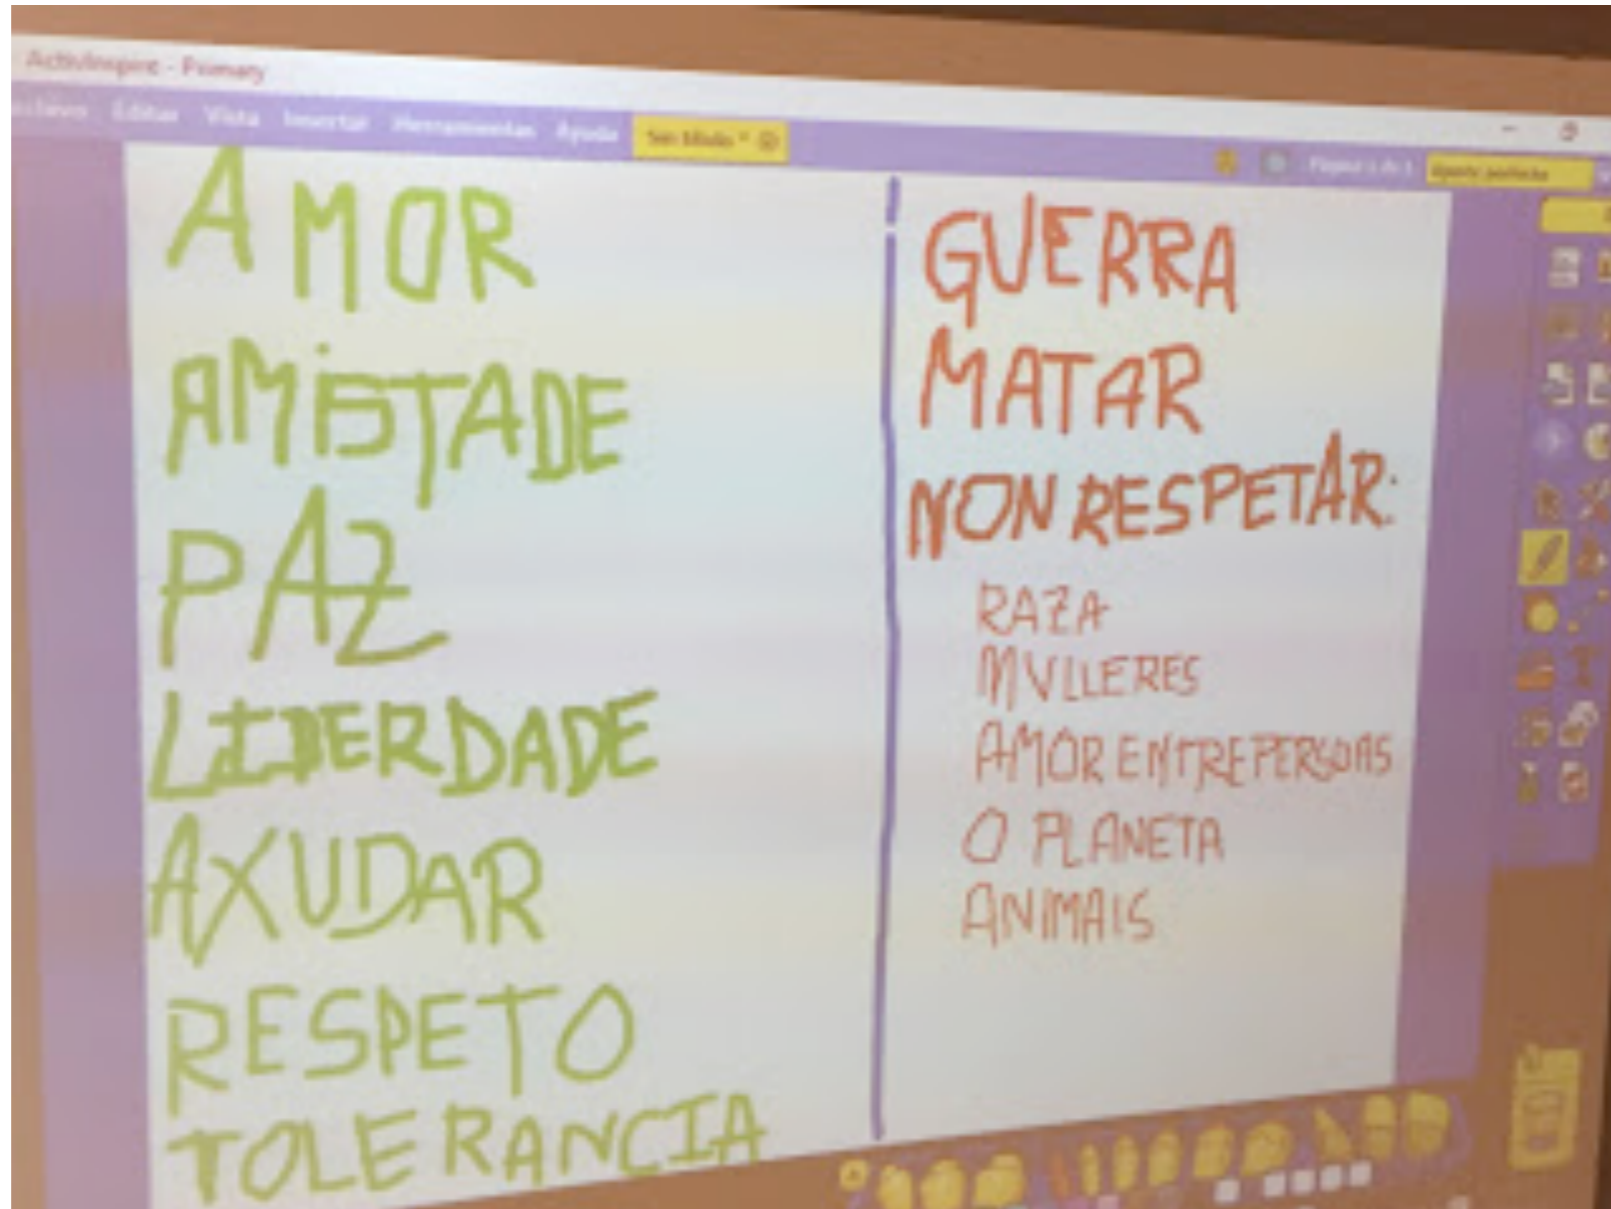 ActivInspire - Primary
Editar Vista Insertar Herramientas Ayuda
AMOR
AMISTADE
PAZ
LIBERDADE
AXUDAR
RESPETO
TOLERANCIA
GUERRA
MATAR
NON RESPETAR:
RAZA
MULLERES
AMOR ENTRE PERSOAS
O PLANETA
ANIMAIS